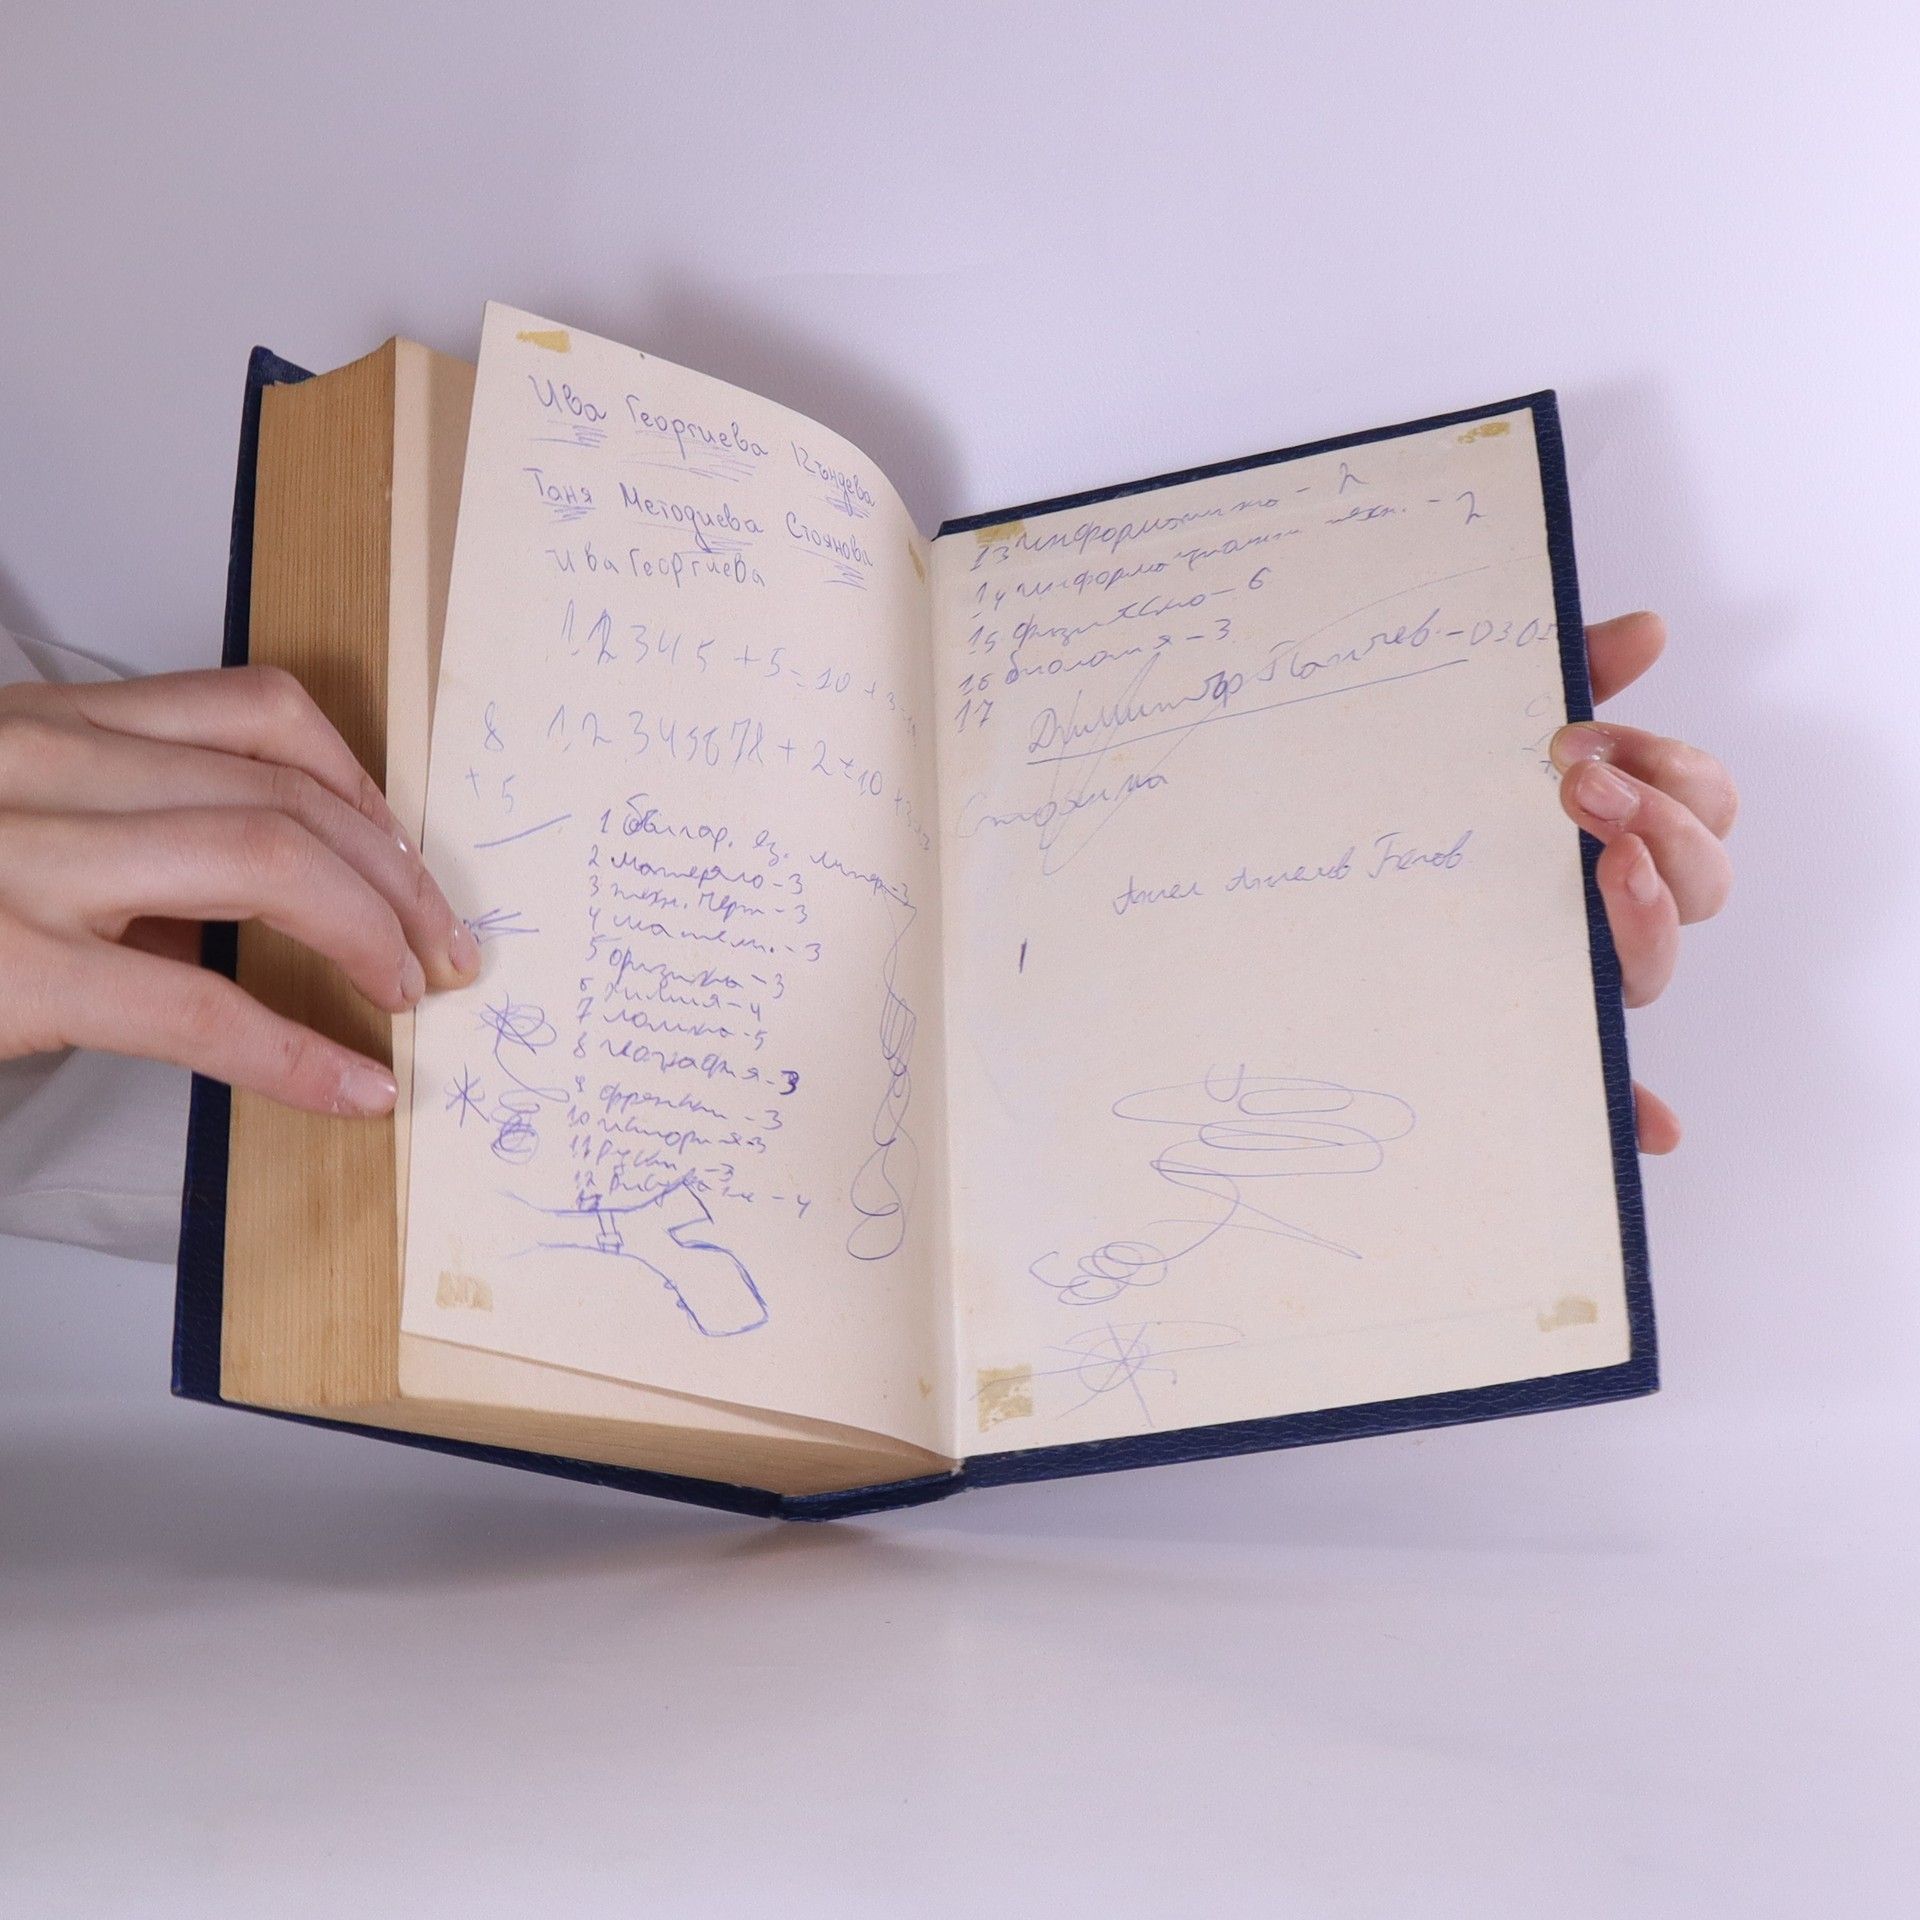 Ива Георгиева Къндева
Таня Методиева Стоянова
Ива Георгиева
12345 + 5 = 10 + 3
8 12345678 + 2 = 10
+ 5
1 Българ. ез. литер - 3
2 матеряло - 3
3 техн. черт - 3
4 матем. - 3
5 физика - 3
6 химия - 4
7 логика - 5
8 география - 3
9 френски - 3
10 история - 3
11 Руски - 3
12 Рисуване - 4
13
13 информатика - 2
14 информационни техн. - 2
15 физическо - 6
16 биология - 3
17
Димитър Панчев - 0305
Ангел Ангелов